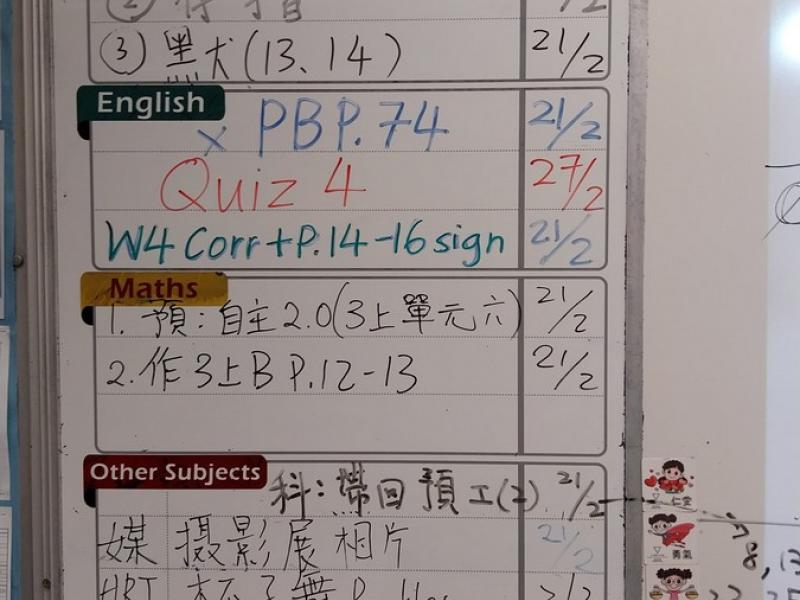 ③ 黑犬(13、14) 21/2
English
× PB P.74 21/2
Quiz 4 27/2
W4 Corr + P.14-16 sign 21/2
Maths
1. 預:自主2.0(3上單元六) 21/2
2. 作3上B P.12-13 21/2
Other Subjects
科:帶回預工(2) 21/2
媒 攝影展相片 21/2
上堂
勇氣